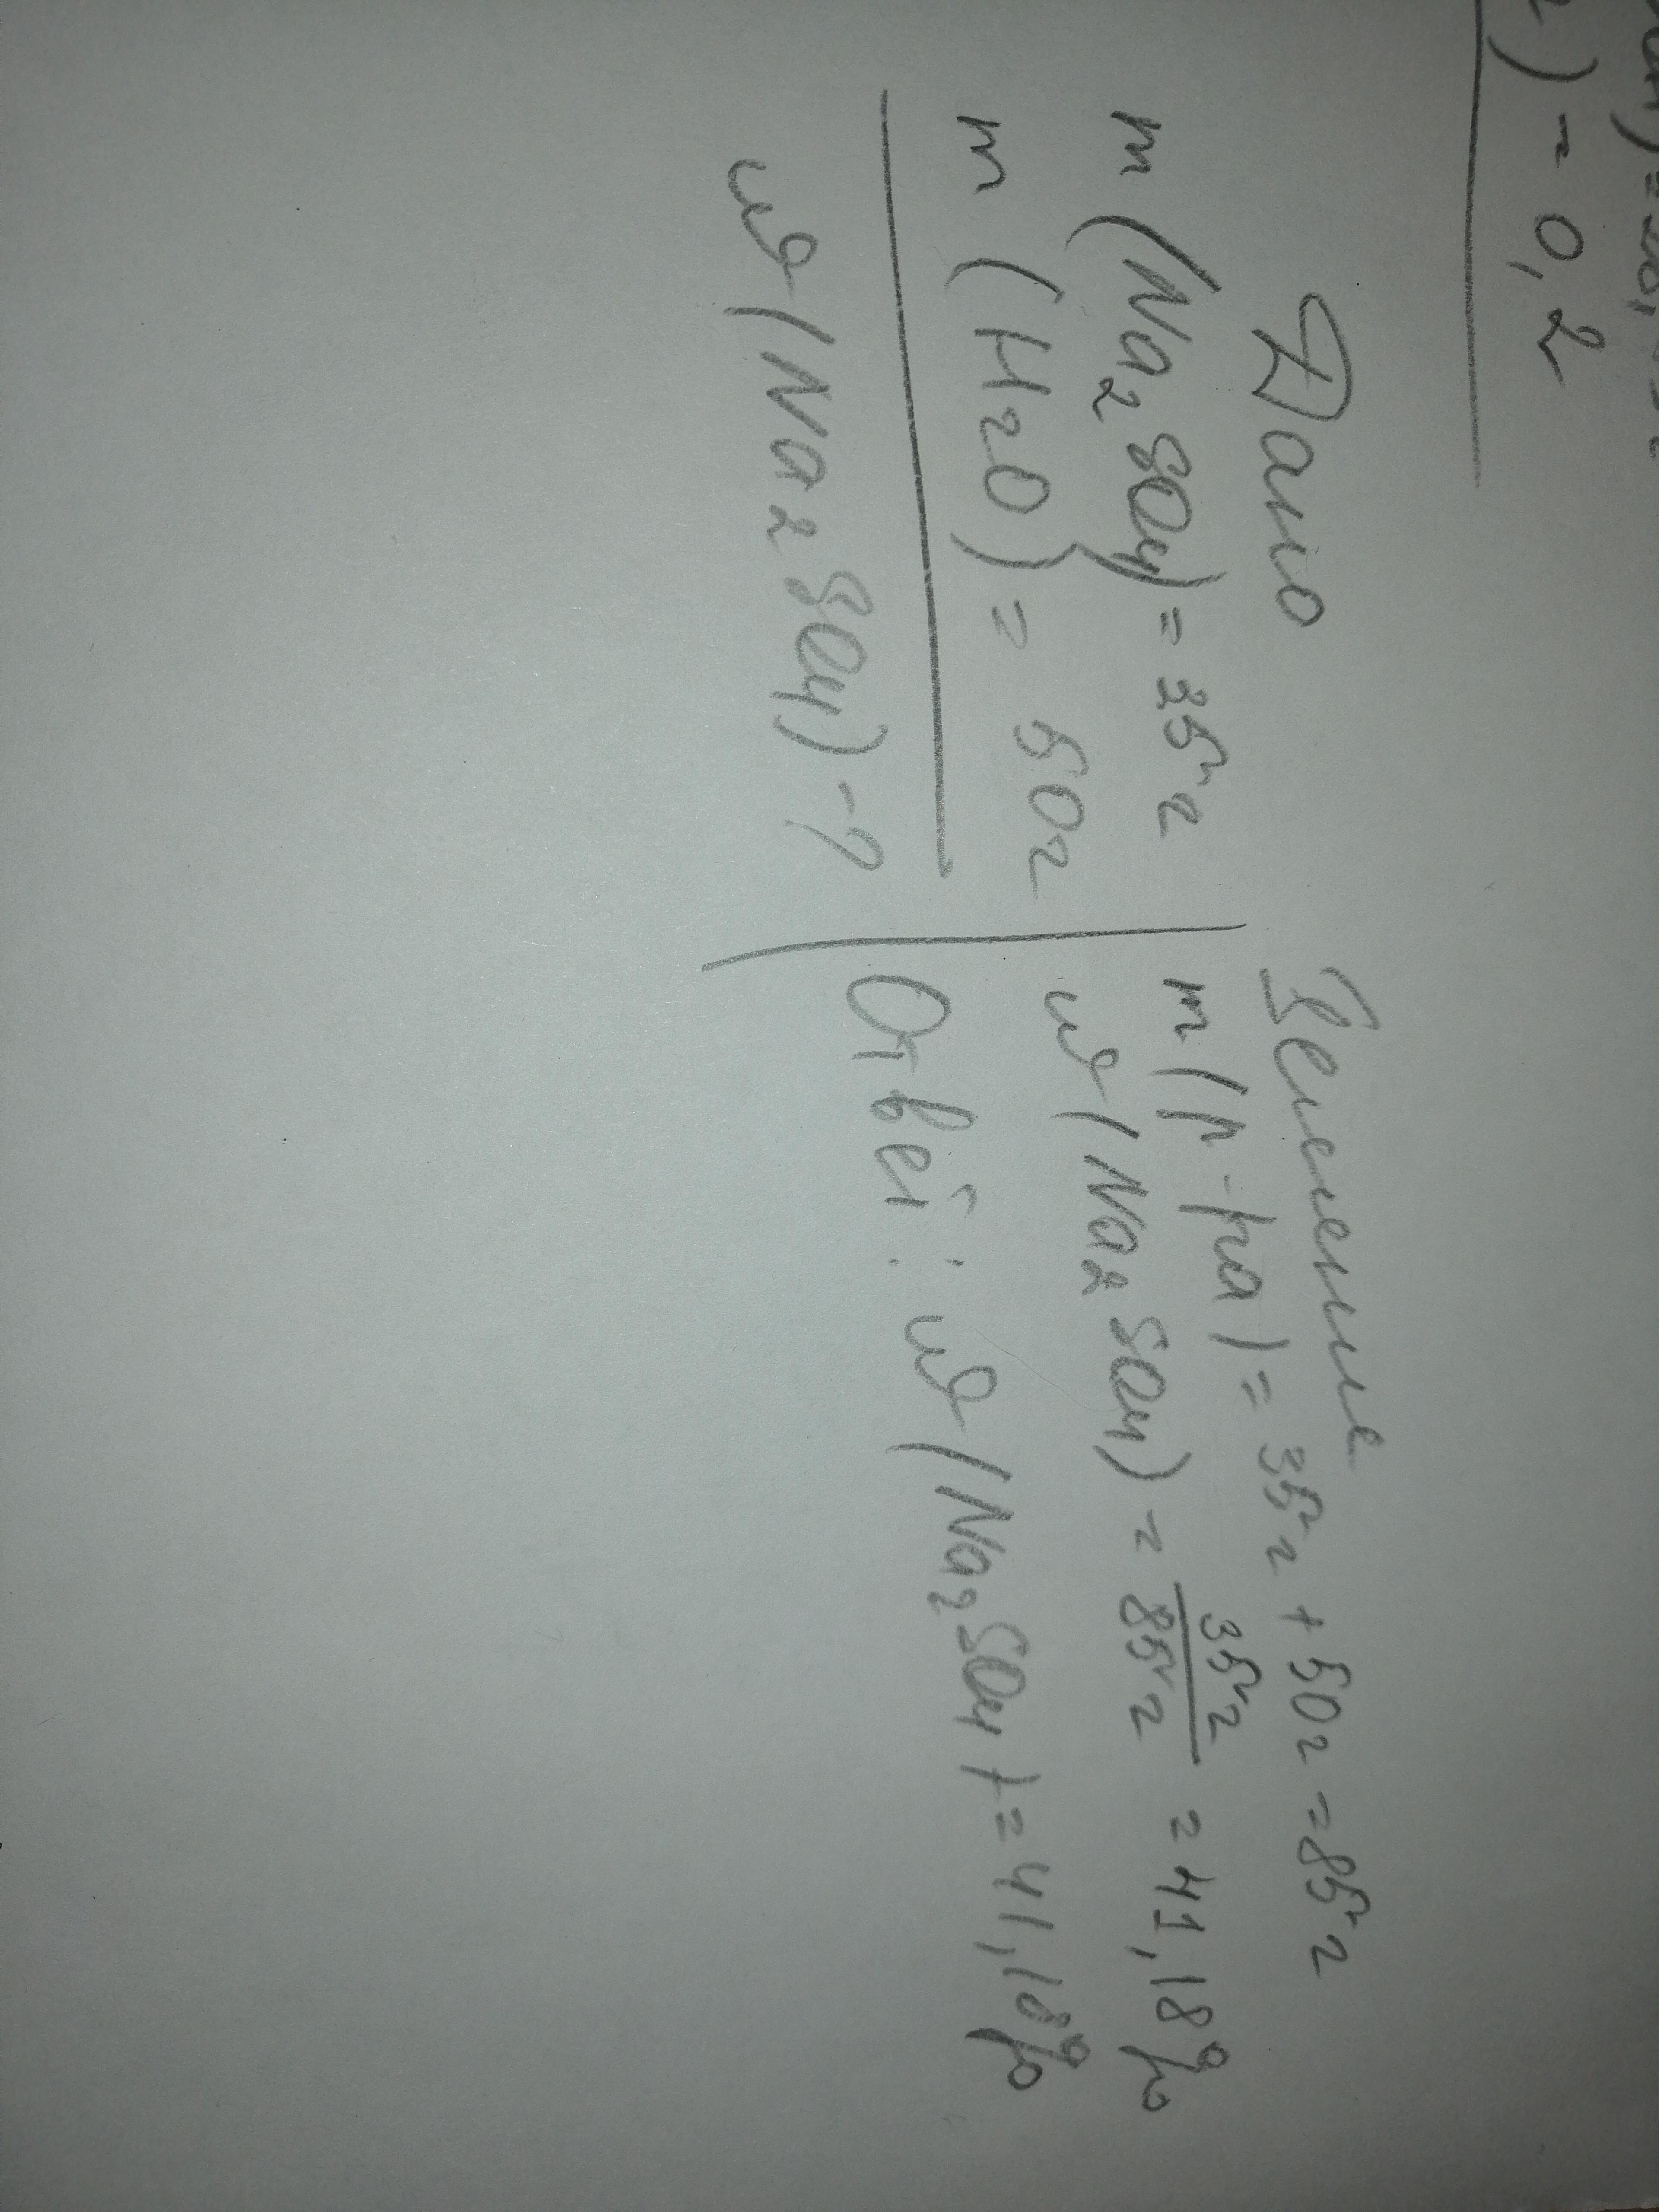 ) = 0,2
Дано
m (Na2SO4) = 35 г
m (H2O) = 50 г
w (Na2SO4) - ?
Решение
m (р-ра) = 35 г + 50 г = 85 г
w (Na2SO4) = 35 г / 85 г = 41,18 %
Ответ: w (Na2SO4) = 41,18 %